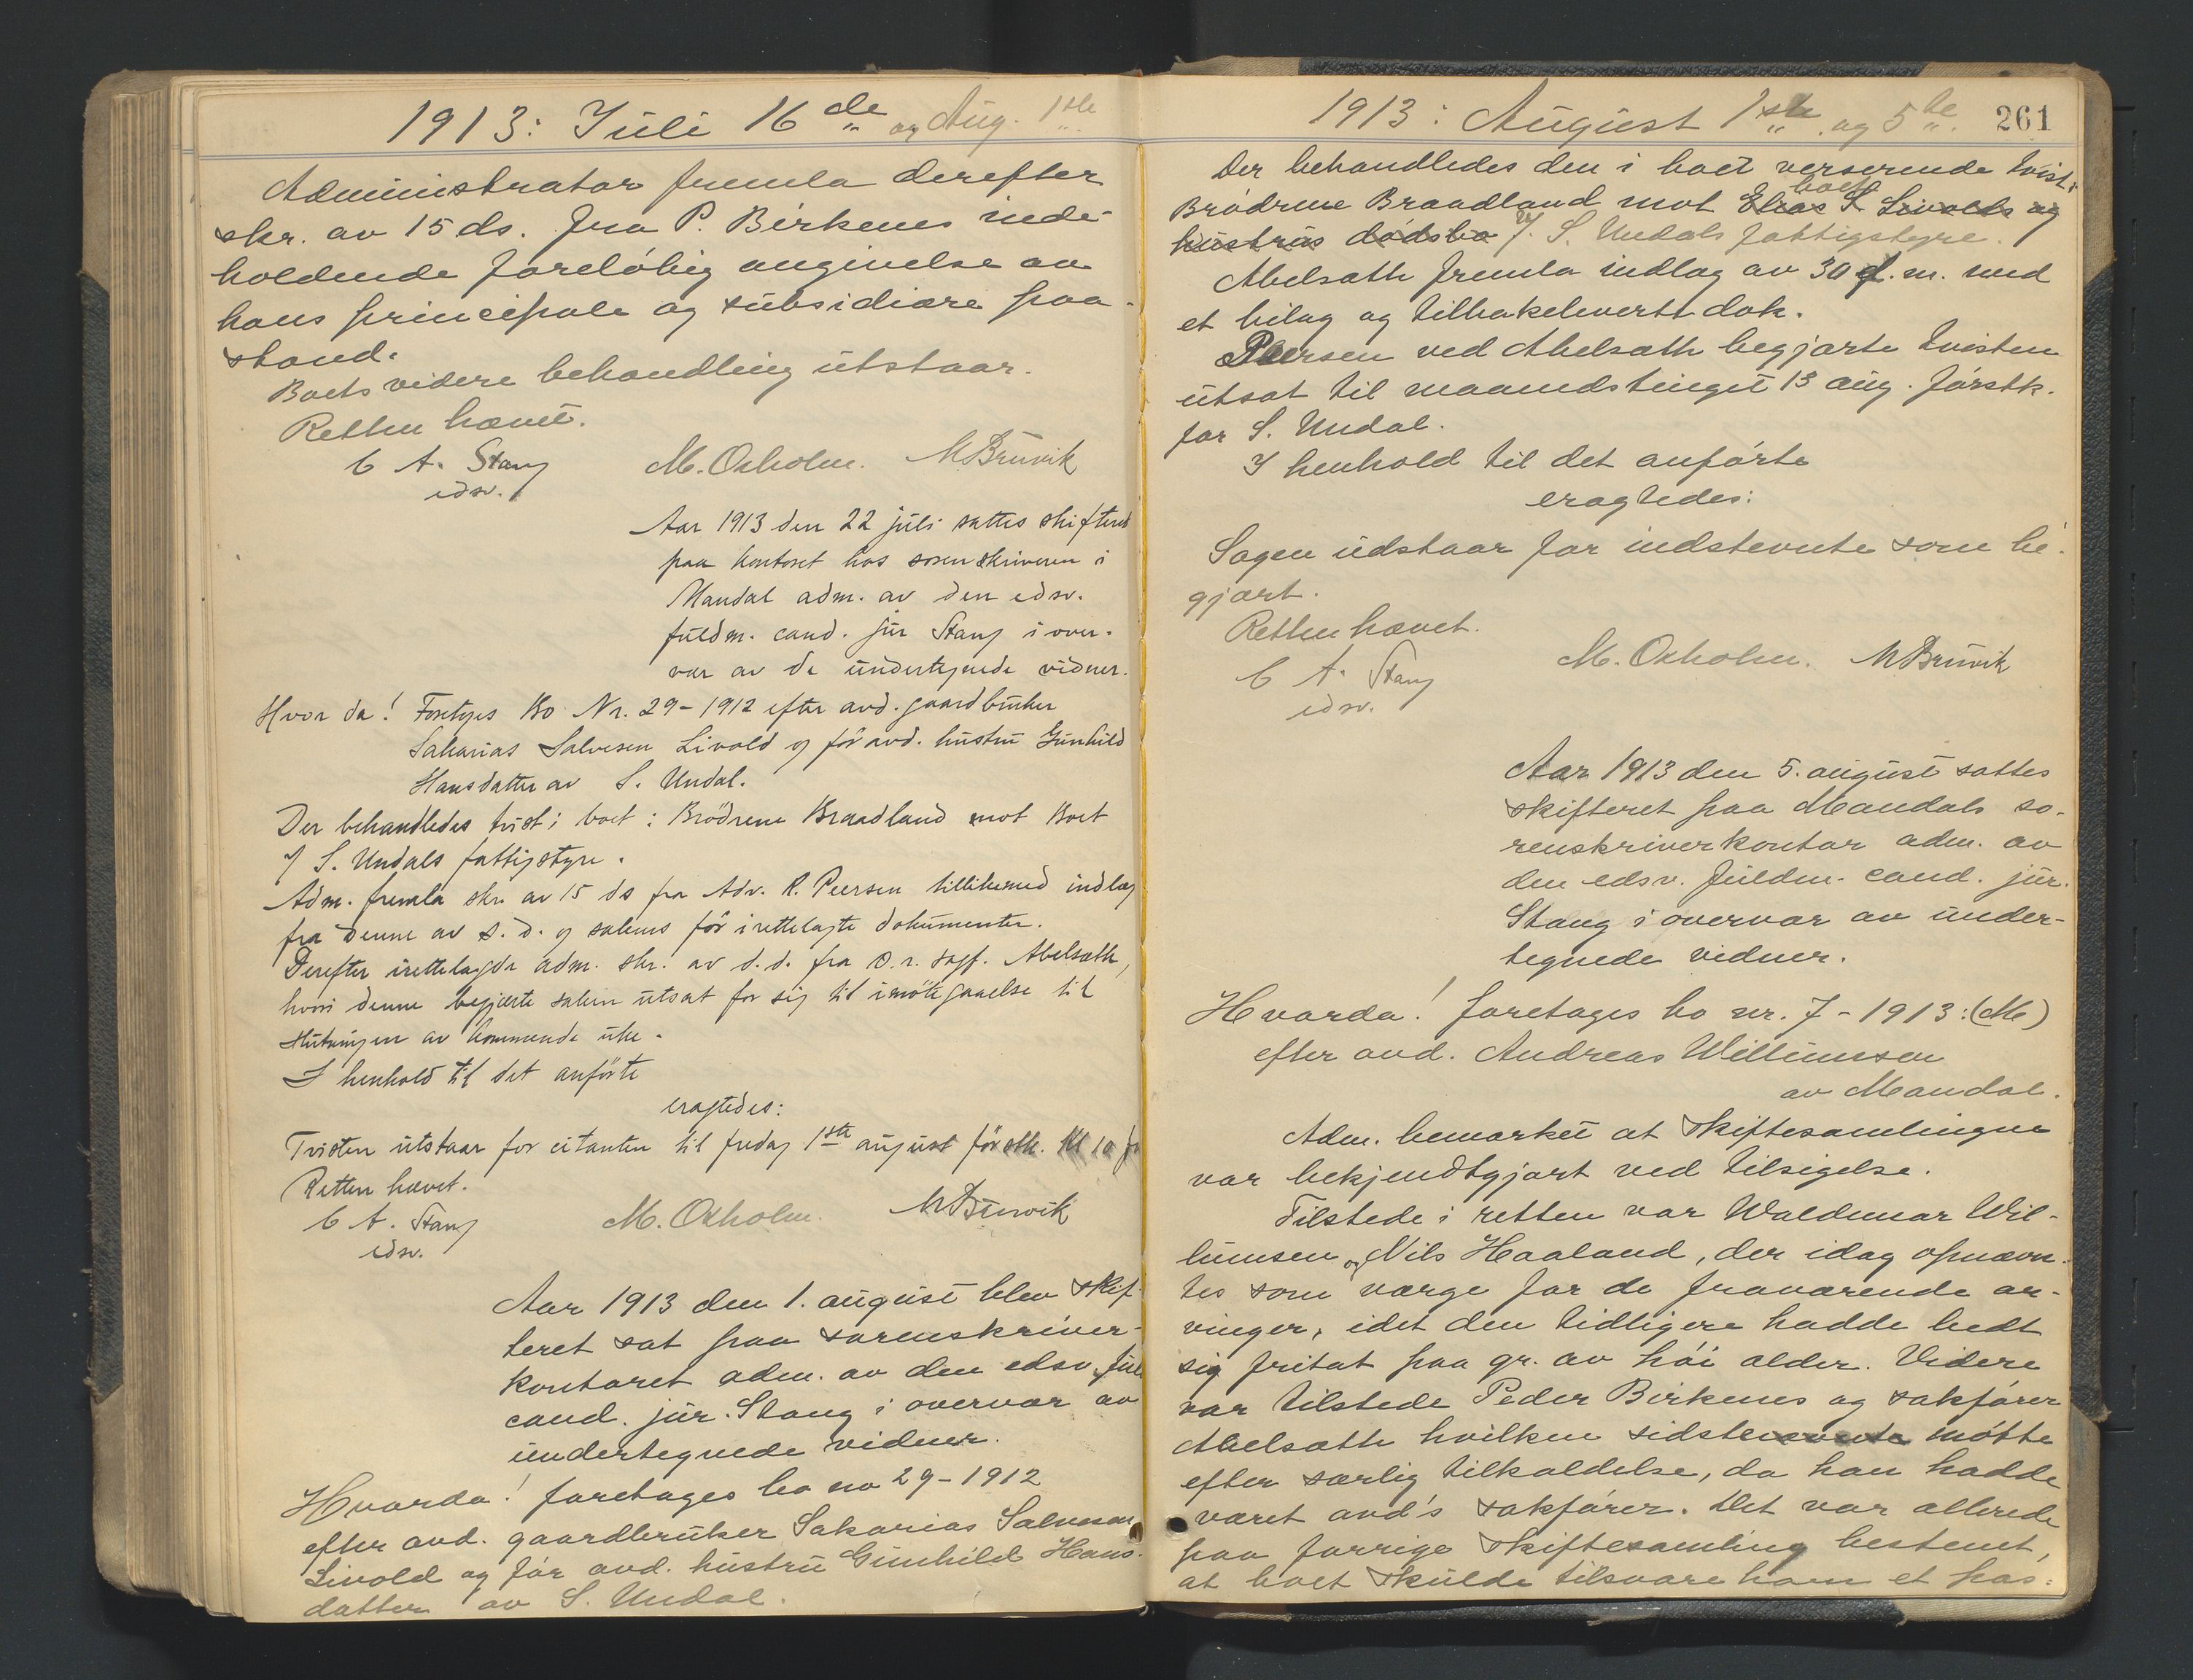 1913: Juli 16de og Aug. 1ste
Administrator fremla derefter
skr. av 15 ds. fra P. Birkenes inde-
holdende foreløbig angivelse av
hans principale og subsidiære paa-
stand.
Boets videre behandling utstaar.
Retten hævet.
C A. Stang M. Oxholm. M Bruvik
edsv.
Aar 1913 den 22 juli sattes skifteret
paa kontoret hos sorenskriveren i
Mandal adm. av den edsv.
fuldm. cand. jur Stang i over-
vær av de undertegnede vidner.
Hvor da! Foretoges Bo Nr. 29-1912 efter avd. gaardbruker
Sakarias Salvesen Livold og før avd. hustru Gunhild
Hansdatter av S. Undal.
Der behandledes tvist i boet: Brødrene Braadland mot Boet
v/ S. Undals fattigstyre.
Adm. fremla skr. av 15 ds fra Adv. R. Peersen tillikemed indlæg
fra denne av s. d. og sakens før irettelagte dokumenter.
Derefter irettelagde adm. skr. av d.d. fra o.r. sagf. Abelsæth,
hvori denne begjærte saken utsat for sig til imøtegaaelse til
slutningen av kommende uke.
I henhold til det anførte
eragtedes:
Tvisten utstaar for citanten til fredag 1ste august førstk. kl 10 fm
Retten hævet.
C A. Stang M. Oxholm. M Bruvik
edsv.
Aar 1913 den 1. august blev skif-
teret sat paa sorenskriver-
kontoret adm. av den edsv. ful
cand. jur. Stang i overvær av
undertegnede vidner.
Hvorda! foretoges bo no 29-1912
efter avd. gaardbruker Sakarias Salvesen
Livold og før avd. hustru Gunhild Hans-
datter av S. Undal.
1913: August 1ste og 5te. 261
Der behandledes den i boet verserende tvist:
Brødrene Braadland mot Elias S. Livolds og boet
hustrus dødsbo v/ S. Undals fattigstyre.
Abelsæth fremla indlæg av 30 f. m. med
et bilag og tilbakeleverte dok.
Peersen ved Abelsæth begjærte tvisten
utsat til maanedstinget 13 aug. førstk.
for S. Undal.
I henhold til det anførte
eragtedes:
Sagen udstaar for indstevnte som be-
gjært.
Retten hævet.
C A. Stang M. Oxholm. M Bruvik
edsv.
Aar 1913 den 5. august sattes
skifteret paa Mandals so-
renskriverkontor adm. av
den edsv. fuldm. cand. jur.
Stang i overvær av under-
tegnede vidner.
Hvorda! foretoges bo nr. 7-1913:(M)
efter avd. Andreas Willumsen
av Mandal.
Adm. bemærket at skiftesamlingen
var bekjendtgjort ved tilsigelse.
Tilstede i retten var Waldemar Wil-
lumsen og Nils Haaland, der idag opnævn-
tes som værge for de fraværende ar-
vinger, idet den tidligere hadde bedt
sig fritat paa gr. av høi alder. Videre
var tilstede Peder Birkenes og sakfører
Abelsæth hvilken sidstenævnte møtte
efter særlig tilkaldelse, da han hadde
været avd's sakfører. Det var allerede
paa forrige skiftesamling bestemt,
at boet skulde tilsvare ham et pas-